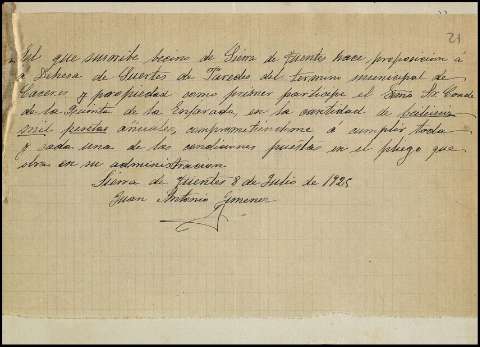 21
El que suscribe becino de Sierra de Fuentes hace proposicion á
a Dehesa de Suertes de Paredes del termino municipal de
Caceres y propiedad como primer participe el Exmo Sr Conde
de la Quinta de la Enjarada, en la cantidad de
mil pesetas anuales, comprometiendome á cumplir toda
y cada una de las condiciones puestas en el pliego que
obra en su administracion
Sierra de Fuentes 8 de Julio de 1925
Juan Antonio Jimenez